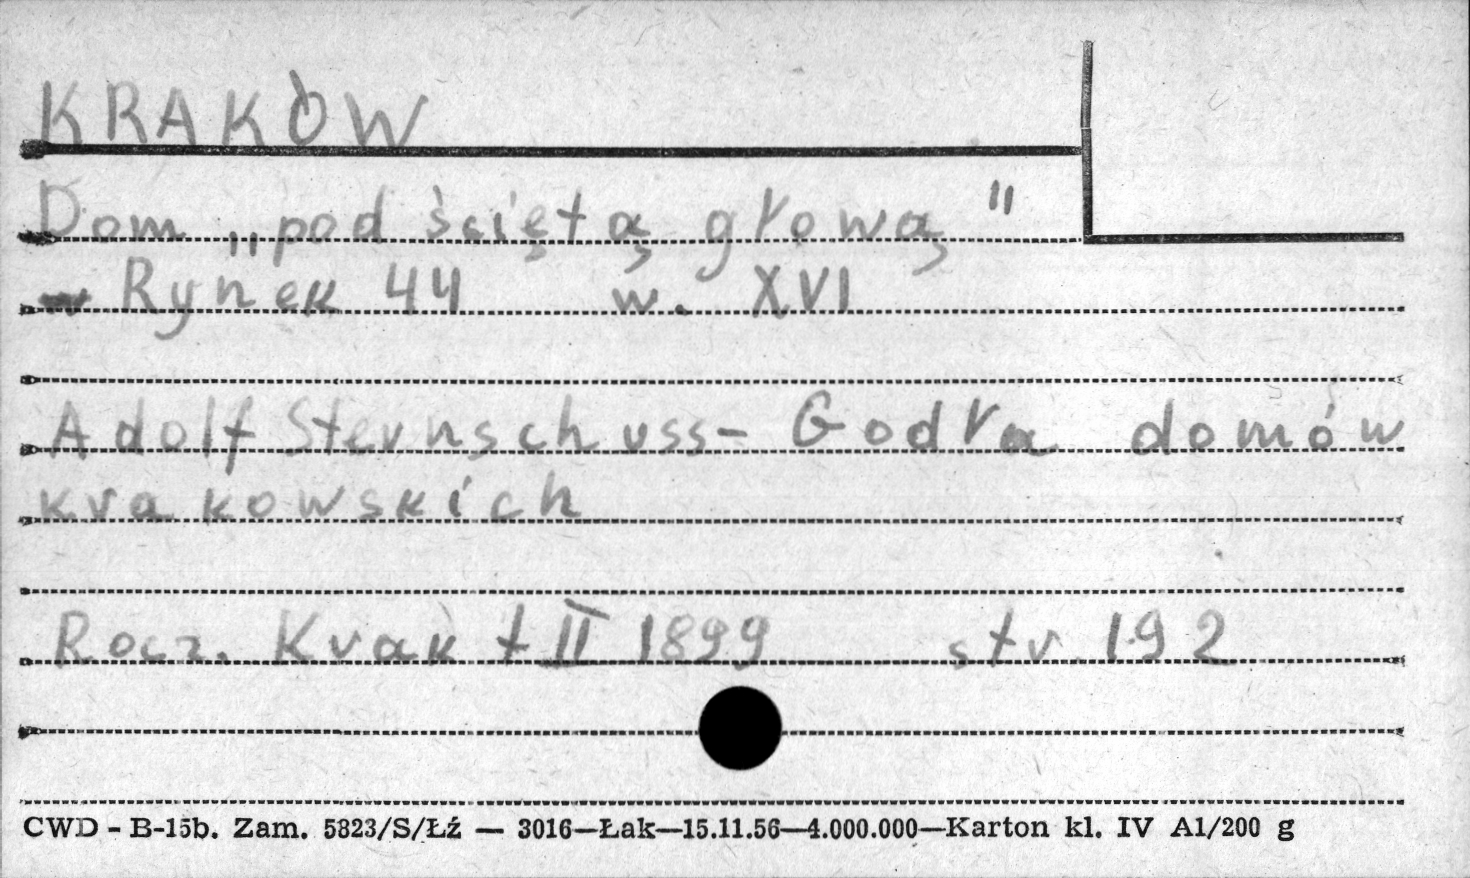 KRAKÓW
Dom „pod ściętą głową"
Rynek 44 w. XVI
Adolf Sternschuss - Godła domów
krakowskich
Rocz. Krak t II 1899 str. 192
CWD - B-15b. Zam. 5823/S/Łź — 3016—Łak—15.11.56—4.000.000—Karton kl. IV A1/200 g